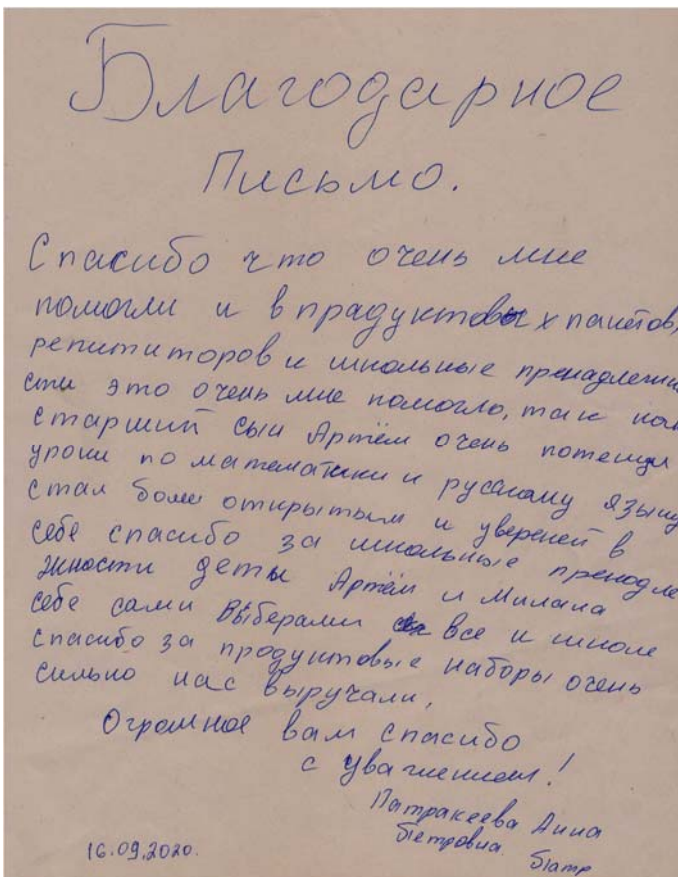 Благодарное
Письмо.
Спасибо что очень мне
помогли и в прадуктовых пакетов,
репититоров и школьные пренадлежно
сти это очень мне помогло, так как
старший сын Артём очень потенул
уроки по математики и русскому языку
стал более открытым и увереней в
себе спасибо за школьные пренадле
жности деты Артём и Милана
себе сами выберали все к школе
спасибо за продуктовые наборы очень
сильно нас выручали,
Огромное вам спасибо
с уважением!
Патракеева Анна
Петровна
16.09.2020.